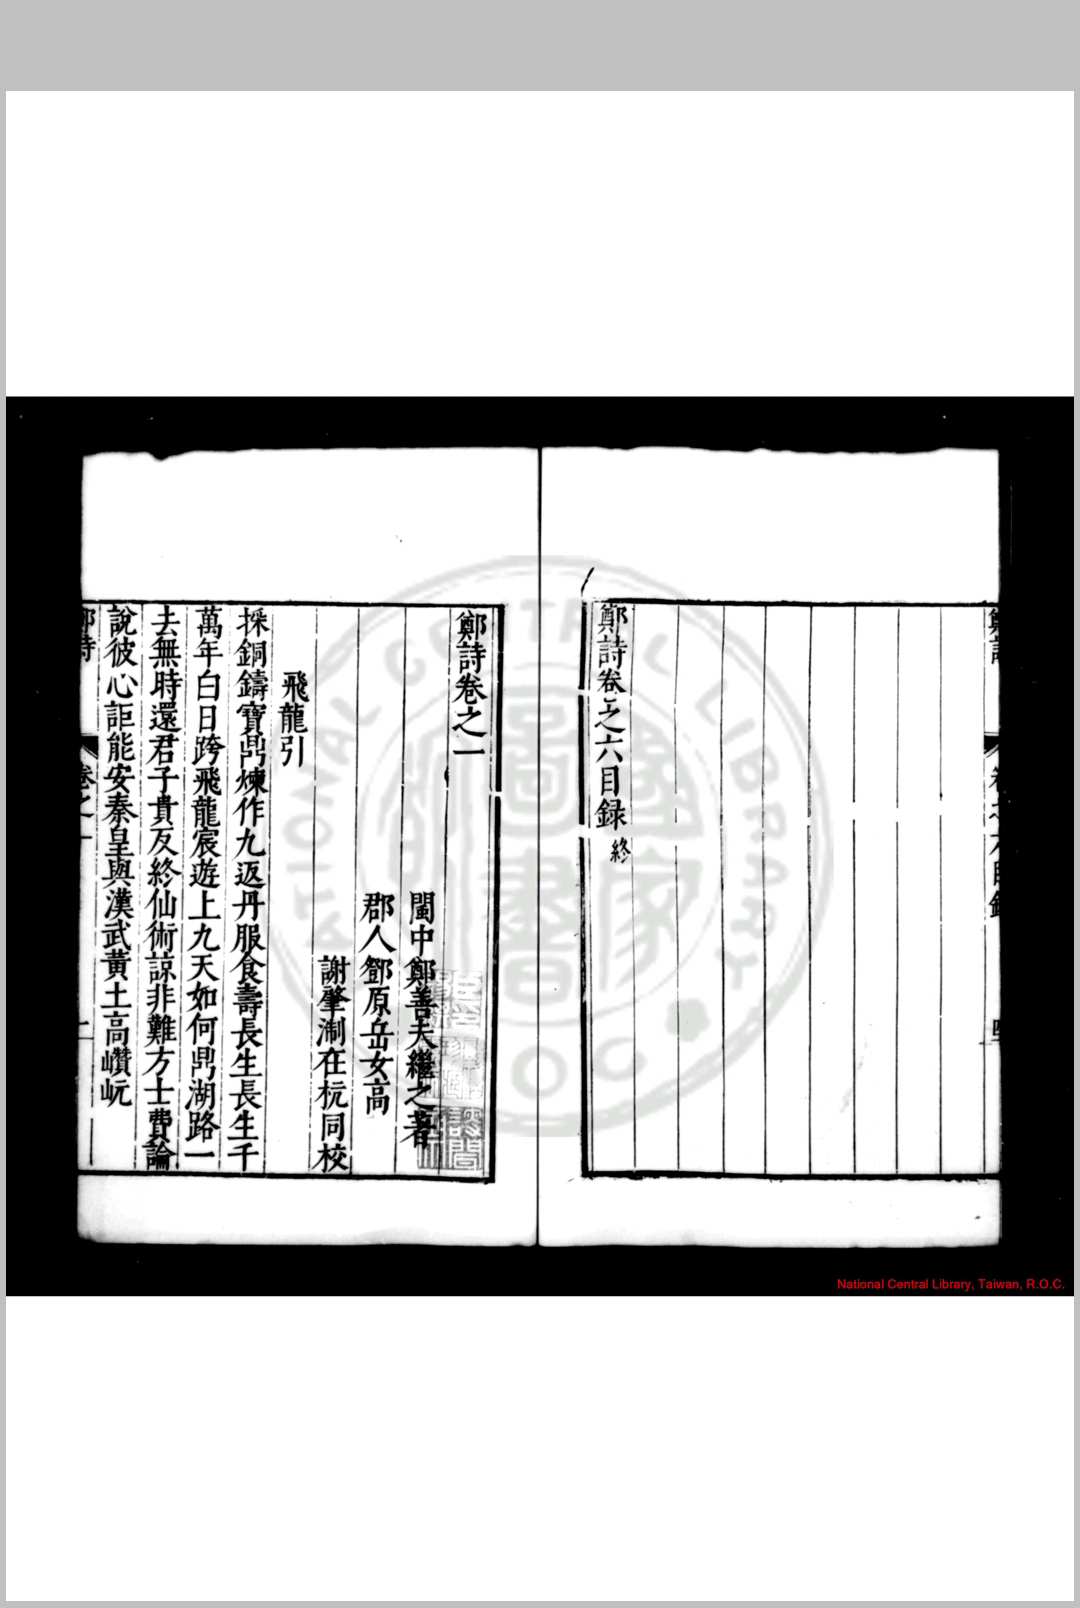 鄭詩卷之六目録終
鄭詩卷之一
閩中鄭善夫繼之著
郡人鄧原岳女高
謝肇淛在杭同校
飛龍引
採銅鑄寶鼎煉作九返丹服食壽長生長生千
萬年白日跨飛龍宸遊上九天如何鼎湖路一
去無時還君子貴反終仙術諒非難方士費論
說彼心詎能安秦皇與漢武黄土高巑岏
鄭詩
卷之一
National Central Library, Taiwan, R.O.C.